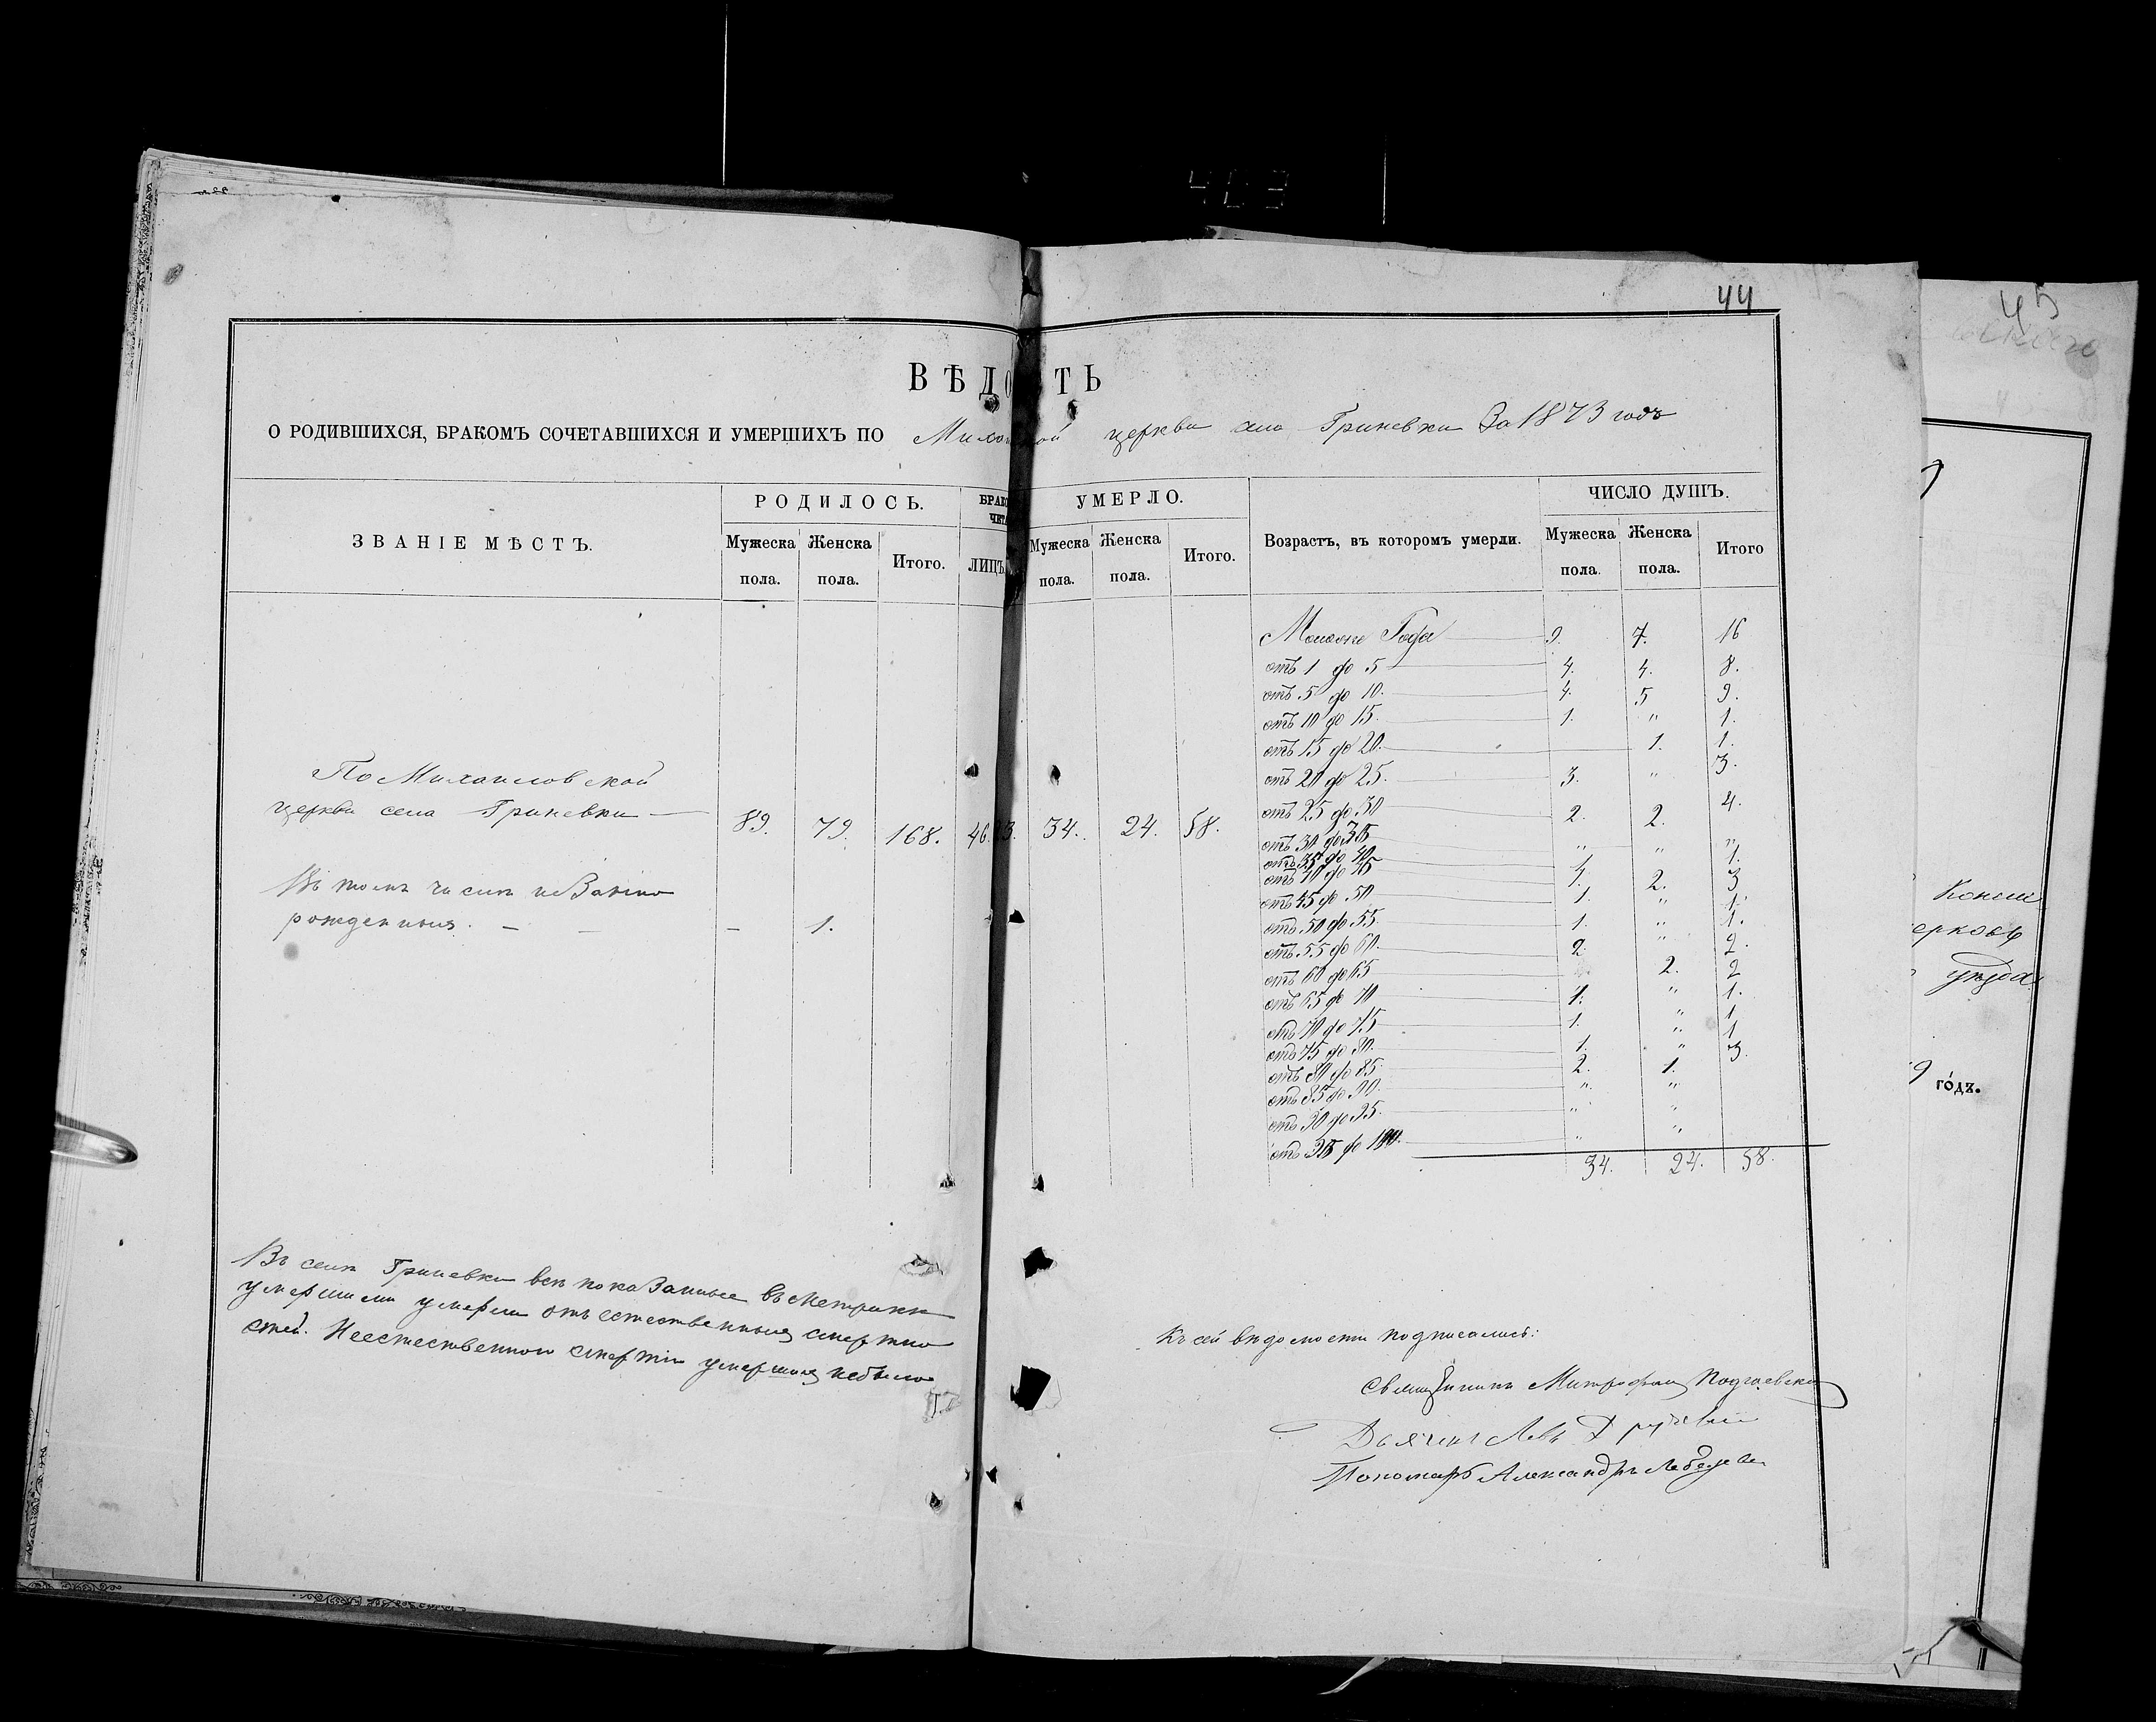 44
45
ВѢДО ТЬ
О РОДИВШИХСЯ, БРАКОМЪ СОЧЕТАВШИХСЯ И УМЕРШИХЪ ПО Миха ой церкви села Гриневки За 1873 годъ
ЗВАНІЕ МѢСТЪ. РОДИЛОСЬ. УМЕРЛО. ЧИСЛО ДУШЪ.
Мужеска пола. Женска пола. Итого. ЛИЦЪ. Мужеска пола. Женска пола. Итого. Возрастъ, въ которомъ умерли. Мужеска пола. Женска пола. Итого
По Михаиловской
церкви села Гриневки — 89. 79. 168. 46. 3. 34. 24. 58.
Въ томъ числѣ неЗаконно
рожденныхъ. — — — 1.
Моложе Года 9. 7. 16
отъ 1 до 5 4. 4. 8.
отъ 5 до 10. 4. 5 9.
отъ 10 до 15. 1. " 1.
отъ 15 до 20. — 1. 1.
отъ 20 до 25. 3. " 3.
отъ 25 до 30 2. 2. 4.
отъ 30 до 35 " " "
отъ 35 до 40 1. 1.
отъ 40 до 45 1. 2. 3
отъ 45 до 50 1. " 1.
отъ 50 до 55. 1. " 1.
отъ 55 до 60. 2 " 2.
отъ 60 до 65 2. 2
отъ 65 до 70 1. " 1.
отъ 70 до 75 1. " 1
отъ 75 до 80. 1. " 1
отъ 80 до 85 2. 1. 3.
отъ 85 до 90. " "
отъ 90 до 95. " "
отъ 95 до 100. " "
34. 24. 58.
Въ селѣ Гриневки всѣ покаЗанные въ метрикѣ
умершими умерли отъ естественныхъ смертно
стей. Неестественною смертію умершихъ небыло
Къ сей вѣдомости подписались:
Священникъ Митрофанъ Подгаевскій
Дьячекъ Левъ
Пономарь Александръ Лебедевъ
ерковь
уѣзда
го́дъ.